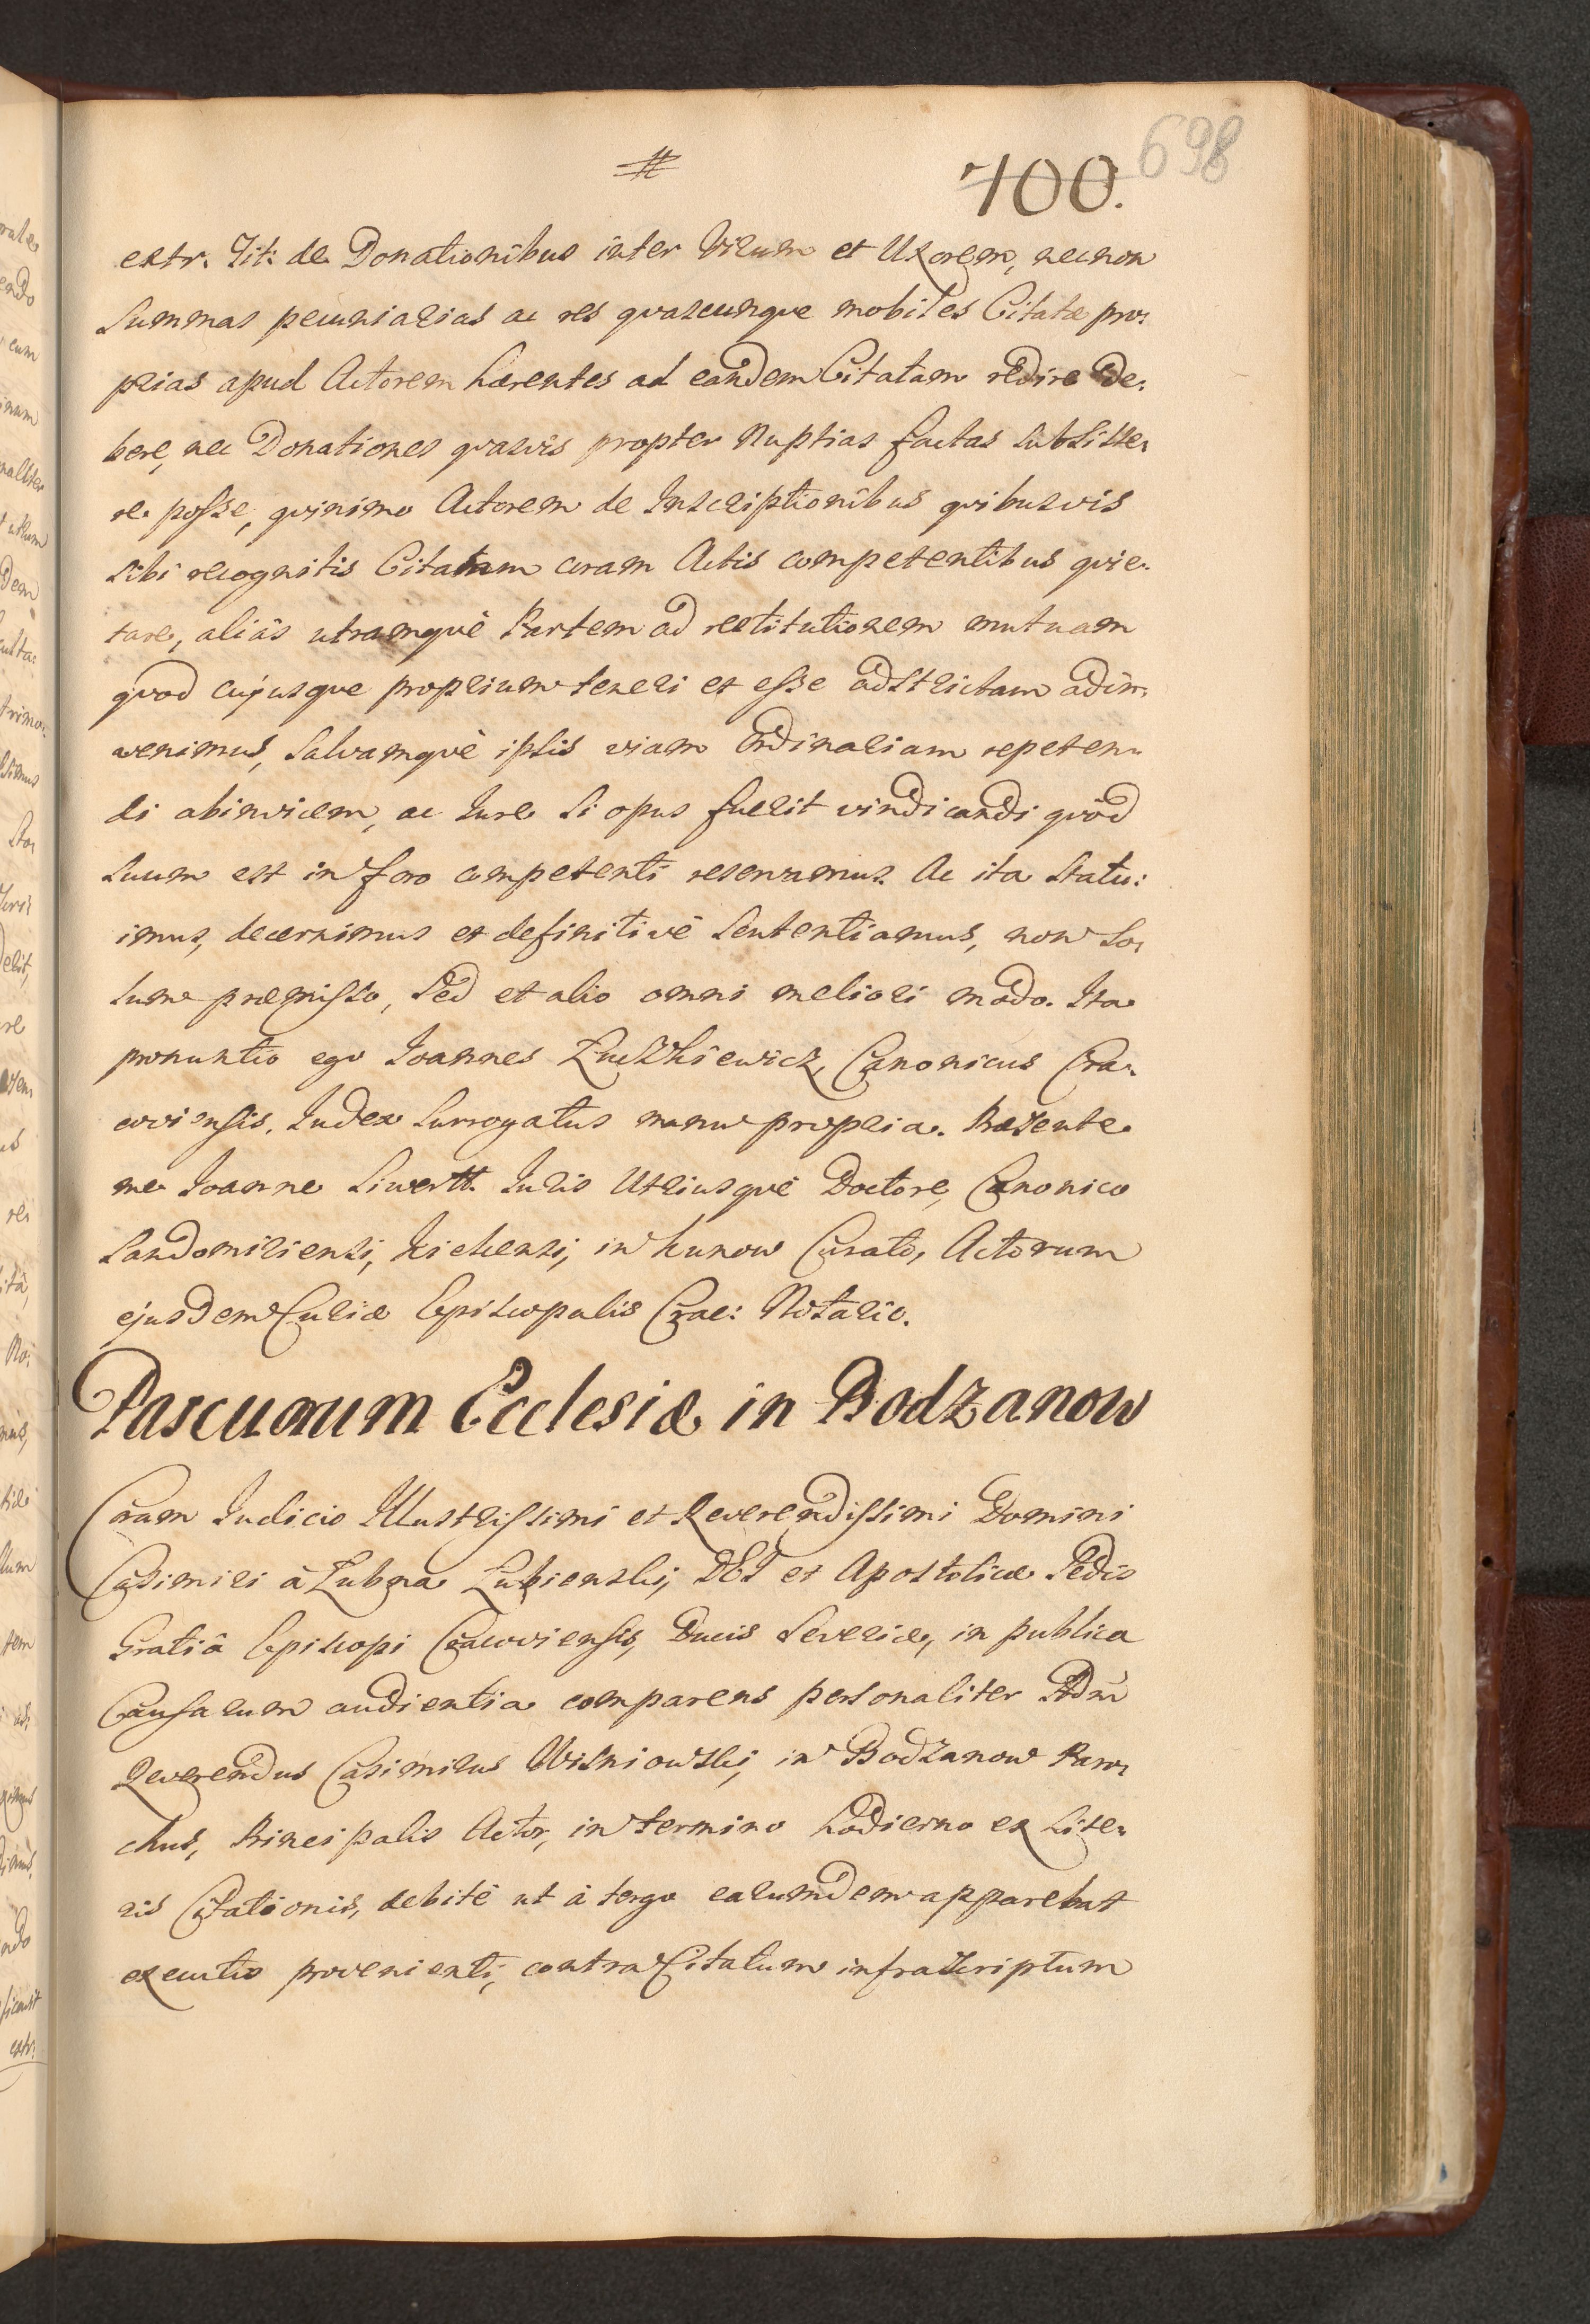 #
700. 698
extr. Tit: de Donationibus inter Virum et Uxorem, necnon
Summas pecuniarias ac res quascunque mobiles Citatæ pro:
prias apud Actorem hærentes ad eandem Citatam redire de:
bere, nec Donationes quasvis propter Nuptias factas subsiste:
re posse, quinimo Actorem de Inscriptionibus quibusvis
sibi recognitis Citatam coram Actis competentibus quie:
tare, aliàs utramquè Partem ad restitutionem mutuam
quod cujusque proprium teneri et esse adstrictam adin:
venimus, salvamquè ipsis viam Ordinariam repeten:
di abinvicem, ac Jure si opus fuerit vindicandi quòd
suum est in foro competenti reservamus. Ac ita Statu:
imus, decernimus et definitivè sententiamus, non so:
lum præmisso, sed et alio omni meliori modo. Ita
pronuntio ego Joannes Łuczkiewicz, Canonicus Cra:
coviensis, Judex Surrogatus manu propria. Præsente
me Joanne Siwertt. Juris Utriusquè Doctore, Canonico
Sandomiriensi, Kielcensi, in Kunow Curato, Actorum
ejusdem Curiæ Episcopalis Crac: Notario.
Pascuorum Ecclesiæ in Bodzanow
Coram Judicio Illustrissimi et Reverendissimi Domini
Casimiri à Łubna Łubienski, DEI et Apostolicæ Sedis
Gratiâ Episcopi Cracoviensis, Ducis Severiæ, in publica
Causarum audientia comparens personaliter Adm̃
Reverendus Casimirus Wisniowski, in Bodzanow Paro:
chus, Principalis Actor, in termino hodierno ex Lite:
ris Citationis, debitè ut à tergo earumdem apparebat
executio provenienti, contra Citatum infrascriptum